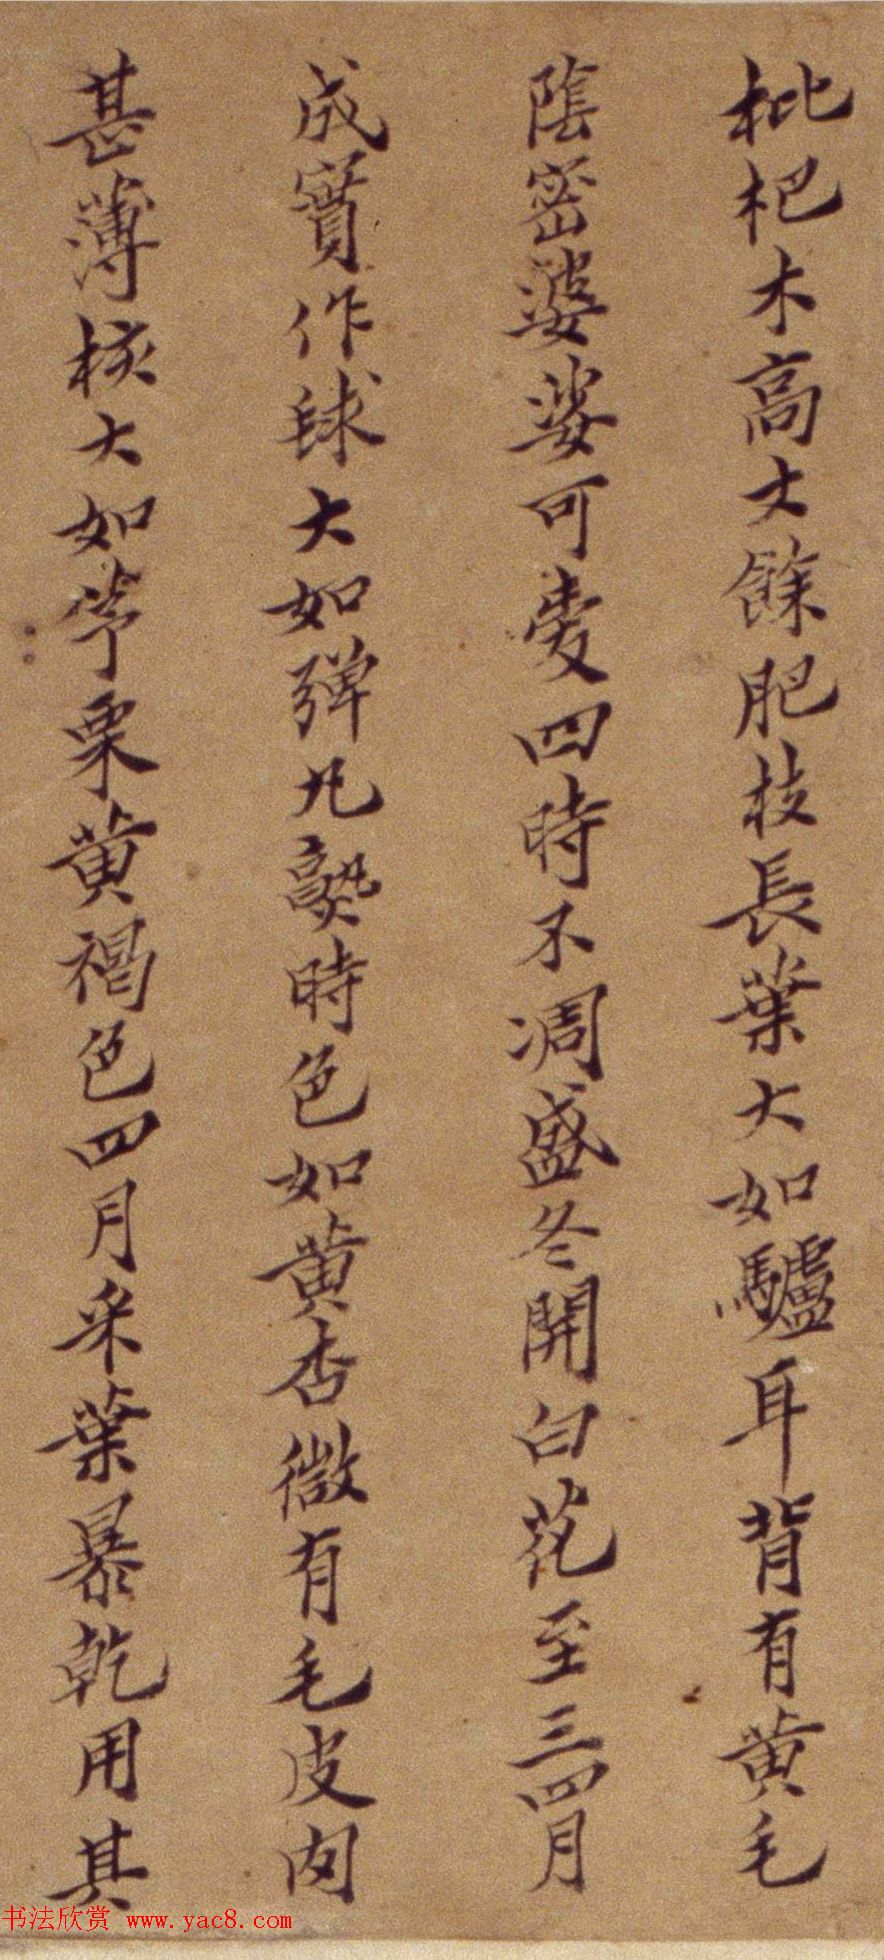 枇杷木高丈餘肥枝長葉大如驢耳背有黄毛
陰密婆娑可愛四時不凋盛冬開白花至三四月
成實作毬大如彈丸熟時色如黄杏微有毛皮肉
甚薄核大如茅栗黄褐色四月采葉暴乾用其
书法欣赏 www.yac8.com